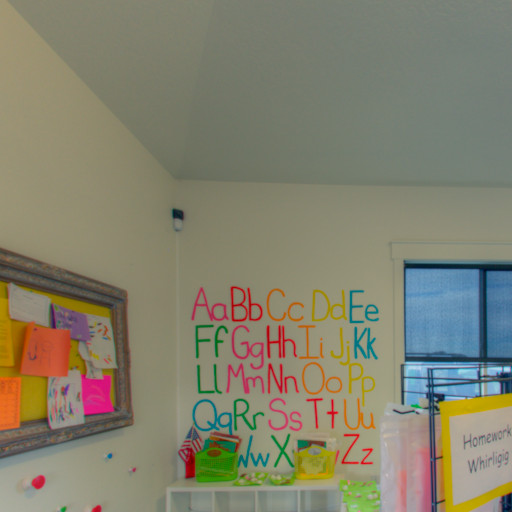 Aa Bb Cc Dd Ee
Ff Gg Hh Ii Jj Kk
Ll Mm Nn Oo Pp
Qq Rr Ss Tt Uu
Ww X Zz
Homework
Whirligig